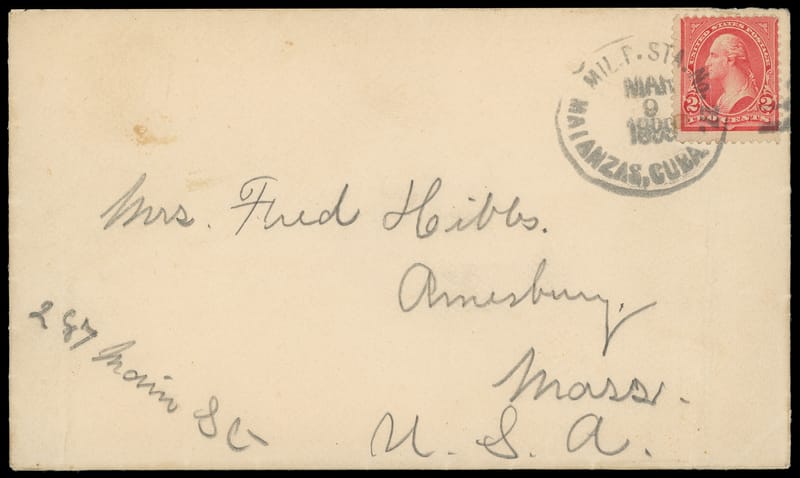 MIL. P. STA. No.
MAR
9
1899
MATANZAS, CUBA.
UNITED STATES POSTAGE
2 2
TWO CENTS
Mrs. Fred Hibbs.
Amesbury.
Mass.
U. S. A.
287 Main St